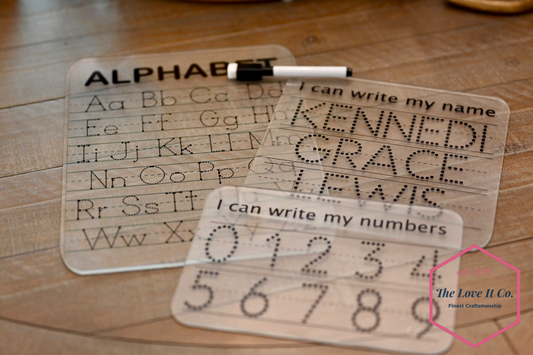 ALPHABET
Aa Bb Cc Dd
Ee Ff Gg Hh
Ii Jj Kk Ll M
Nn Oo Pp
Rr Ss Tt
Ww Xx
I can write my name
KENNEDI
GRACE
LEWIS
I can write my numbers
0 1 2 3 4
5 6 7 8 9
The Love It Co.
Finest Craftsmanship